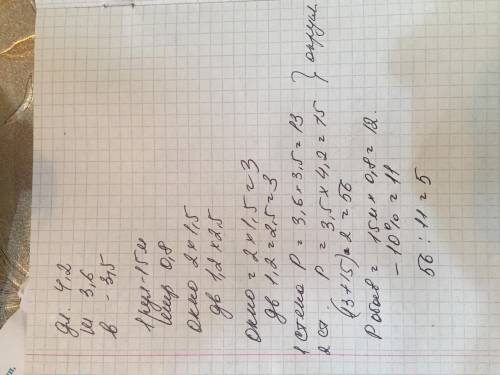 дл. 4,2
ш 3,6
в - 3,5
1 рул - 15 м
шир 0,8
окно 2 × 1,5
дв 1,2 × 2,5
окно = 2 × 1,5 = 3
дв 1,2 = 2,5 = 3
1 стена P = 3,6 × 3,5 = 13 } округл.
2 ст P = 3,5 × 4,2 = 15
(13 + 15) × 2 = 56
P обоев = 15 м × 0,8 = 12.
- 10% = 11
56 : 11 = 5